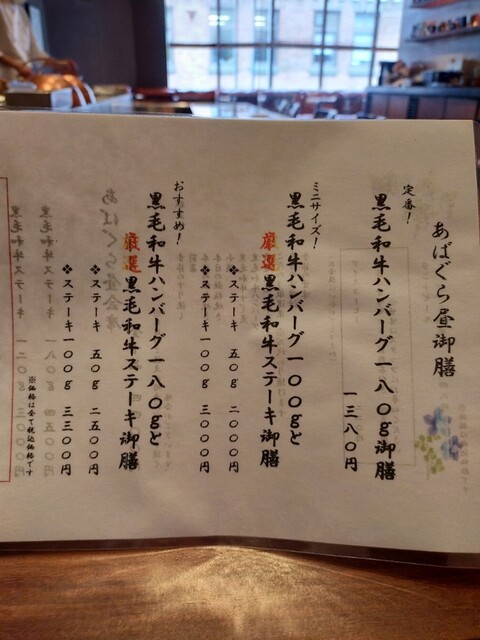 あばぐら昼御膳
定番！
黒毛和牛ハンバーグ一八〇g御膳
一三八〇円
ミニサイズ！
黒毛和牛ハンバーグ一〇〇gと
厳選黒毛和牛ステーキ御膳
❖ステーキ 五〇g 二〇〇〇円
❖ステーキ一〇〇g 三〇〇〇円
おすすめ！
黒毛和牛ハンバーグ一八〇gと
厳選黒毛和牛ステーキ御膳
❖ステーキ 五〇g 二五〇〇円
❖ステーキ一〇〇g 三三〇〇円
※価格は全て税込価格です